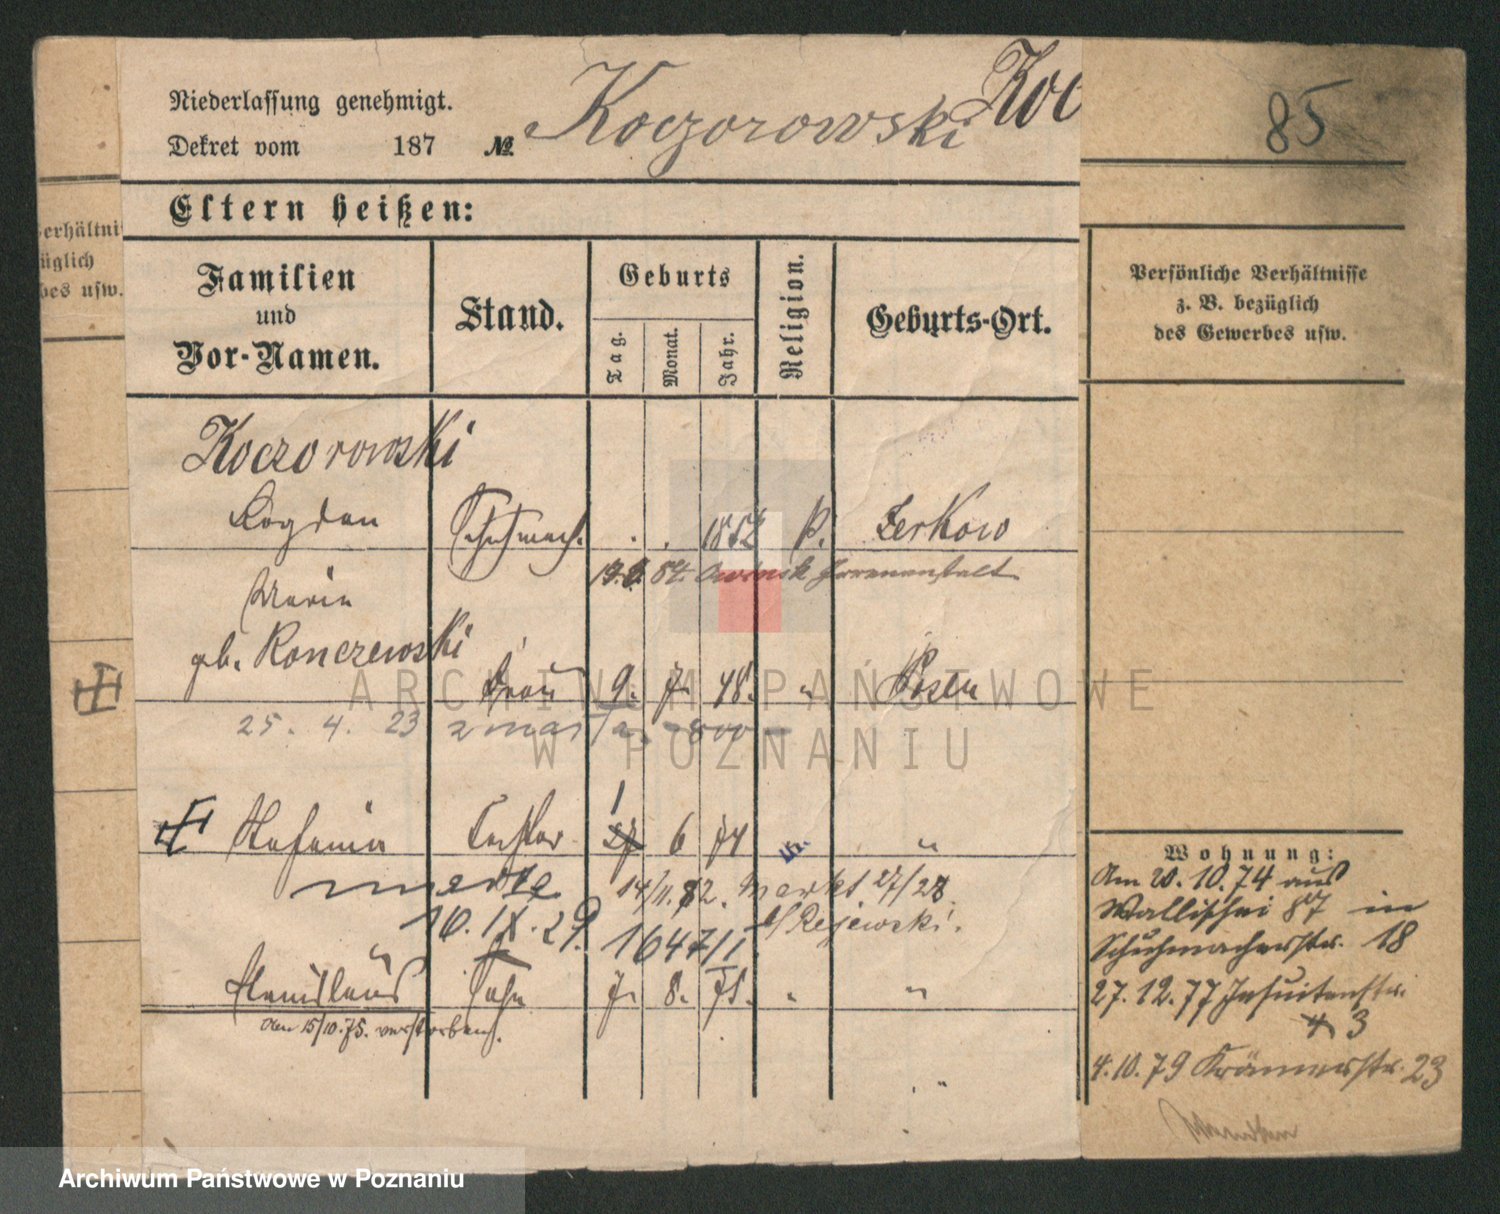 Niederlassung genehmigt.
Dekret vom 187 № Koczorowski
Koc
85
Eltern heißen:
erhältni
üglich
bes usw.
Familien
und
Vor-Namen.
Stand.
Geburts
Tag.
Monat.
Jahr.
Religion.
Geburts-Ort.
Persönliche Verhältnisse
z. B. bezüglich
des Gewerbes usw.
Koczorowski
Bogdan Schuhmach. 1852 k. Zerkow
84. Owinsk Irrenanstalt
Maria
geb. Konczewski
Frau 9. 7. 48. " Posen
25. 4. 23 zmarła
1
Stefania Tochter 27 6 74 "
14/11. 82. Markt 27/28
10. IX. 29. b/Rejewski.
1647/I
Stanislaus Sohn 7. 8. 75. "
Am 15/10. 75. verstorben.
Wohnung:
Am 20. 10. 74 aus
Wallischei 87 in
Schuhmacherstr. 18
27. 12. 77 Jesuitenstr.
4 3
4. 10. 79 Krämerstr. 23
ARCHIWUM PAŃSTWOWE
W POZNANIU
Archiwum Państwowe w Poznaniu